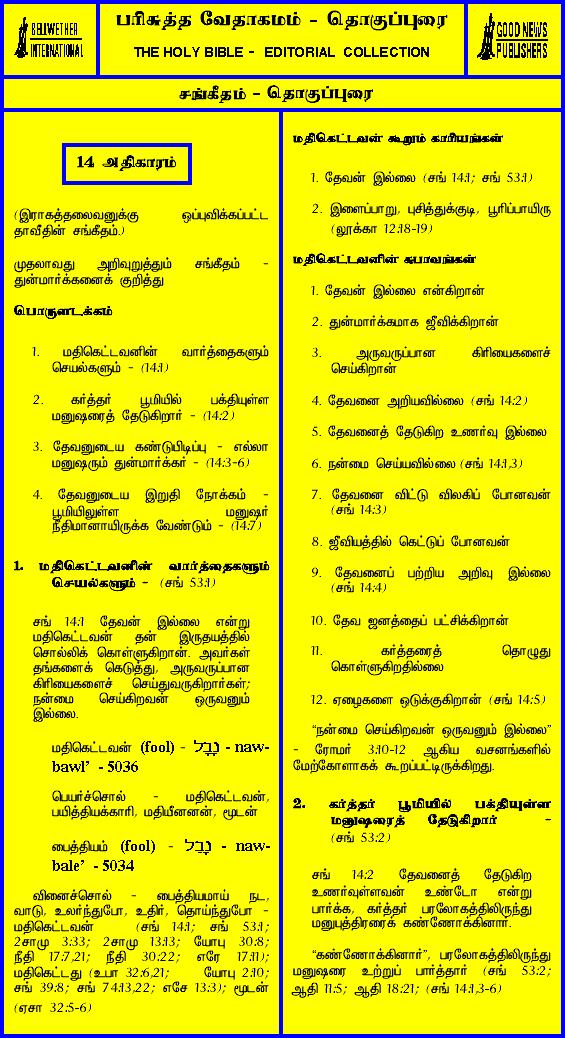 BELLWETHER
INTERNATIONAL
பரிசுத்த வேதாகமம் - தொகுப்புரை
THE HOLY BIBLE - EDITORIAL COLLECTION
GOOD NEWS
PUBLISHERS
சங்கீதம் - தொகுப்புரை
14 அதிகாரம்
(இராகத்தலைவனுக்கு ஒப்புவிக்கப்பட்ட
தாவீதின் சங்கீதம்.)
முதலாவது அறிவுறுத்தும் சங்கீதம் -
துன்மார்க்கனைக் குறித்து
பொருளடக்கம்
1. மதிகெட்டவனின் வார்த்தைகளும்
செயல்களும் - (14:1)
2. கர்த்தர் பூமியில் பக்தியுள்ள
மனுஷரைத் தேடுகிறார் - (14:2)
3. தேவனுடைய கண்டுபிடிப்பு - எல்லா
மனுஷரும் துன்மார்க்கர் - (14:3-6)
4. தேவனுடைய இறுதி நோக்கம் -
பூமியிலுள்ள மனுஷர்
நீதிமானாயிருக்க வேண்டும் - (14:7)
1. மதிகெட்டவனின் வார்த்தைகளும்
செயல்களும் - (சங் 53:1)
சங் 14:1 தேவன் இல்லை என்று
மதிகெட்டவன் தன் இருதயத்தில்
சொல்லிக் கொள்ளுகிறான். அவர்கள்
தங்களைக் கெடுத்து, அருவருப்பான
கிரியைகளைச் செய்துவருகிறார்கள்;
நன்மை செய்கிறவன் ஒருவனும்
இல்லை.
மதிகெட்டவன் (fool) - נָבָל - naw-
bawl' - 5036
பெயர்ச்சொல் - மதிகெட்டவன்,
பயித்தியக்காரி, மதியீனனன், மூடன்
பைத்தியம் (fool) - נָבֵל - naw-
bale' - 5034
வினைச்சொல் - பைத்தியமாய் நட,
வாடு, உலர்ந்துபோ, உதிர், தொய்ந்துபோ -
மதிகெட்டவன் (சங் 14:1; சங் 53:1;
2சாமு 3:33; 2சாமு 13:13; யோபு 30:8;
நீதி 17:7,21; நீதி 30:22; எரே 17:11);
மதிகெட்டது (உபா 32:6,21; யோபு 2:10;
சங் 39:8; சங் 74:13,22; எசே 13:3); மூடன்
(ஏசா 32:5-6)
மதிகெட்டவன் கூறும் காரியங்கள்
1. தேவன் இல்லை (சங் 14:1; சங் 53:1)
2. இளைப்பாறு, புசித்துக்குடி, பூரிப்பாயிரு
(லூக்கா 12:18-19)
மதிகெட்டவனின் சுபாவங்கள்
1. தேவன் இல்லை என்கிறான்
2. துன்மார்க்கமாக ஜீவிக்கிறான்
3. அருவருப்பான கிரியைகளைச்
செய்கிறான்
4. தேவனை அறியவில்லை (சங் 14:2)
5. தேவனைத் தேடுகிற உணர்வு இல்லை
6. நன்மை செய்யவில்லை (சங் 14:1,3)
7. தேவனை விட்டு விலகிப் போனவன்
(சங் 14:3)
8. ஜீவியத்தில் கெட்டுப் போனவன்
9. தேவனைப் பற்றிய அறிவு இல்லை
(சங் 14:4)
10. தேவ ஜனத்தைப் பட்சிக்கிறான்
11. கர்த்தரைத் தொழுது
கொள்ளுகிறதில்லை
12. ஏழைகளை ஒடுக்குகிறான் (சங் 14:5)
“நன்மை செய்கிறவன் ஒருவனும் இல்லை”
- ரோமர் 3:10-12 ஆகிய வசனங்களில்
மேற்கோளாகக் கூறப்பட்டிருக்கிறது.
2. கர்த்தர் பூமியில் பக்தியுள்ள
மனுஷரைத் தேடுகிறார் -
(சங் 53:2)
சங் 14:2 தேவனைத் தேடுகிற
உணர்வுள்ளவன் உண்டோ என்று
பார்க்க, கர்த்தர் பரலோகத்திலிருந்து
மனுபுத்திரரைக் கண்ணோக்கினார்.
“கண்ணோக்கினார்”, பரலோகத்திலிருந்து
மனுஷரை உற்றுப் பார்த்தார் (சங் 53:2;
ஆதி 11:5; ஆதி 18:21; (சங் 14:1,3-6)